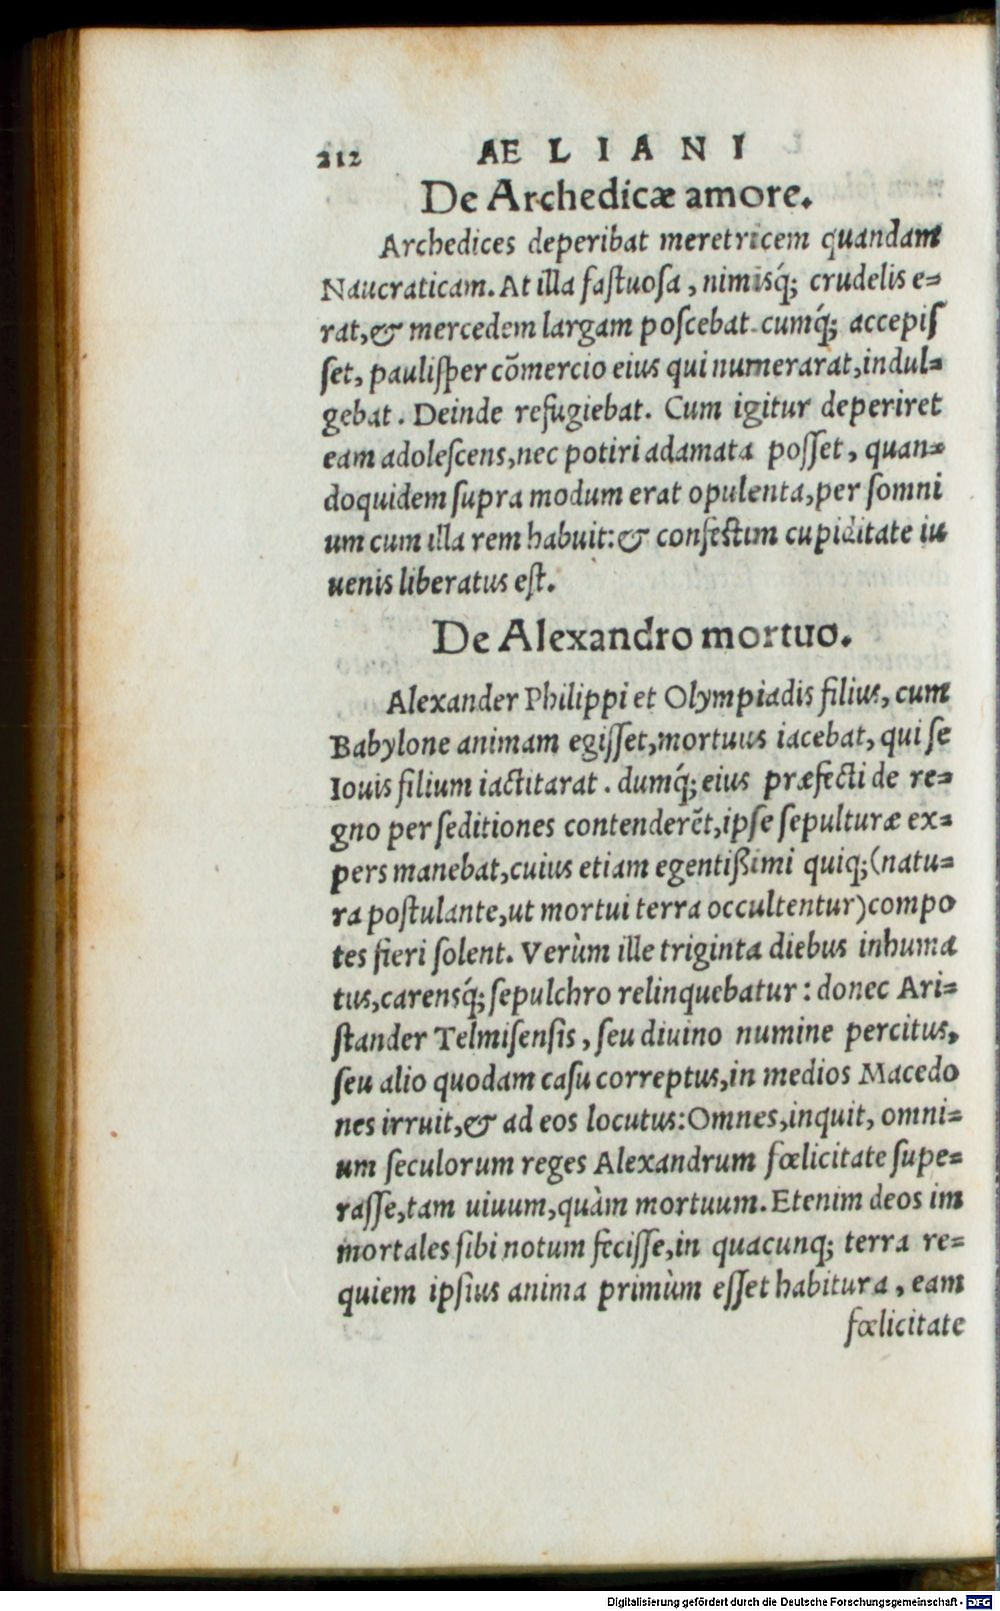 212 AELIANI
De Archedicæ amore.
Archedices deperibat meretricem quandam
Naucraticam. At illa fastuosa, nimisq́; crudelis e=
rat, & mercedem largam poscebat. cumq́; accepis
set, paulisper cõmercio eius qui numerarat, indul=
gebat. Deinde refugiebat. Cum igitur deperiret
eam adolescens, nec potiri adamata posset, quan=
doquidem supra modum erat opulenta, per somni
um cum illa rem habuit: & confestim cupiditate iu
uenis liberatus est.
De Alexandro mortuo.
Alexander Philippi et Olympiadis filius, cum
Babylone animam egisset, mortuus iacebat, qui se
Iouis filium iactitarat. dumq́; eius præfecti de re=
gno per seditiones contenderẽt, ipse sepulturæ ex=
pers manebat, cuius etiam egentißimi quiq; (natu=
ra postulante, ut mortui terra occultentur) compo
tes fieri solent. Verùm ille triginta diebus inhuma
tus, carensq́; sepulchro relinquebatur: donec Ari=
stander Telmisensis, seu diuino numine percitus,
seu alio quodam casu correptus, in medios Macedo
nes irruit, & ad eos locutus: Omnes, inquit, omni=
um seculorum reges Alexandrum fœlicitate supe=
rasse, tam uiuum, quàm mortuum. Etenim deos im
mortales sibi notum fecisse, in quacunq; terra re=
quiem ipsius anima primùm esset habitura, eam
fœlicitate
Digitalisierung gefördert durch die Deutsche Forschungsgemeinschaft - DFG